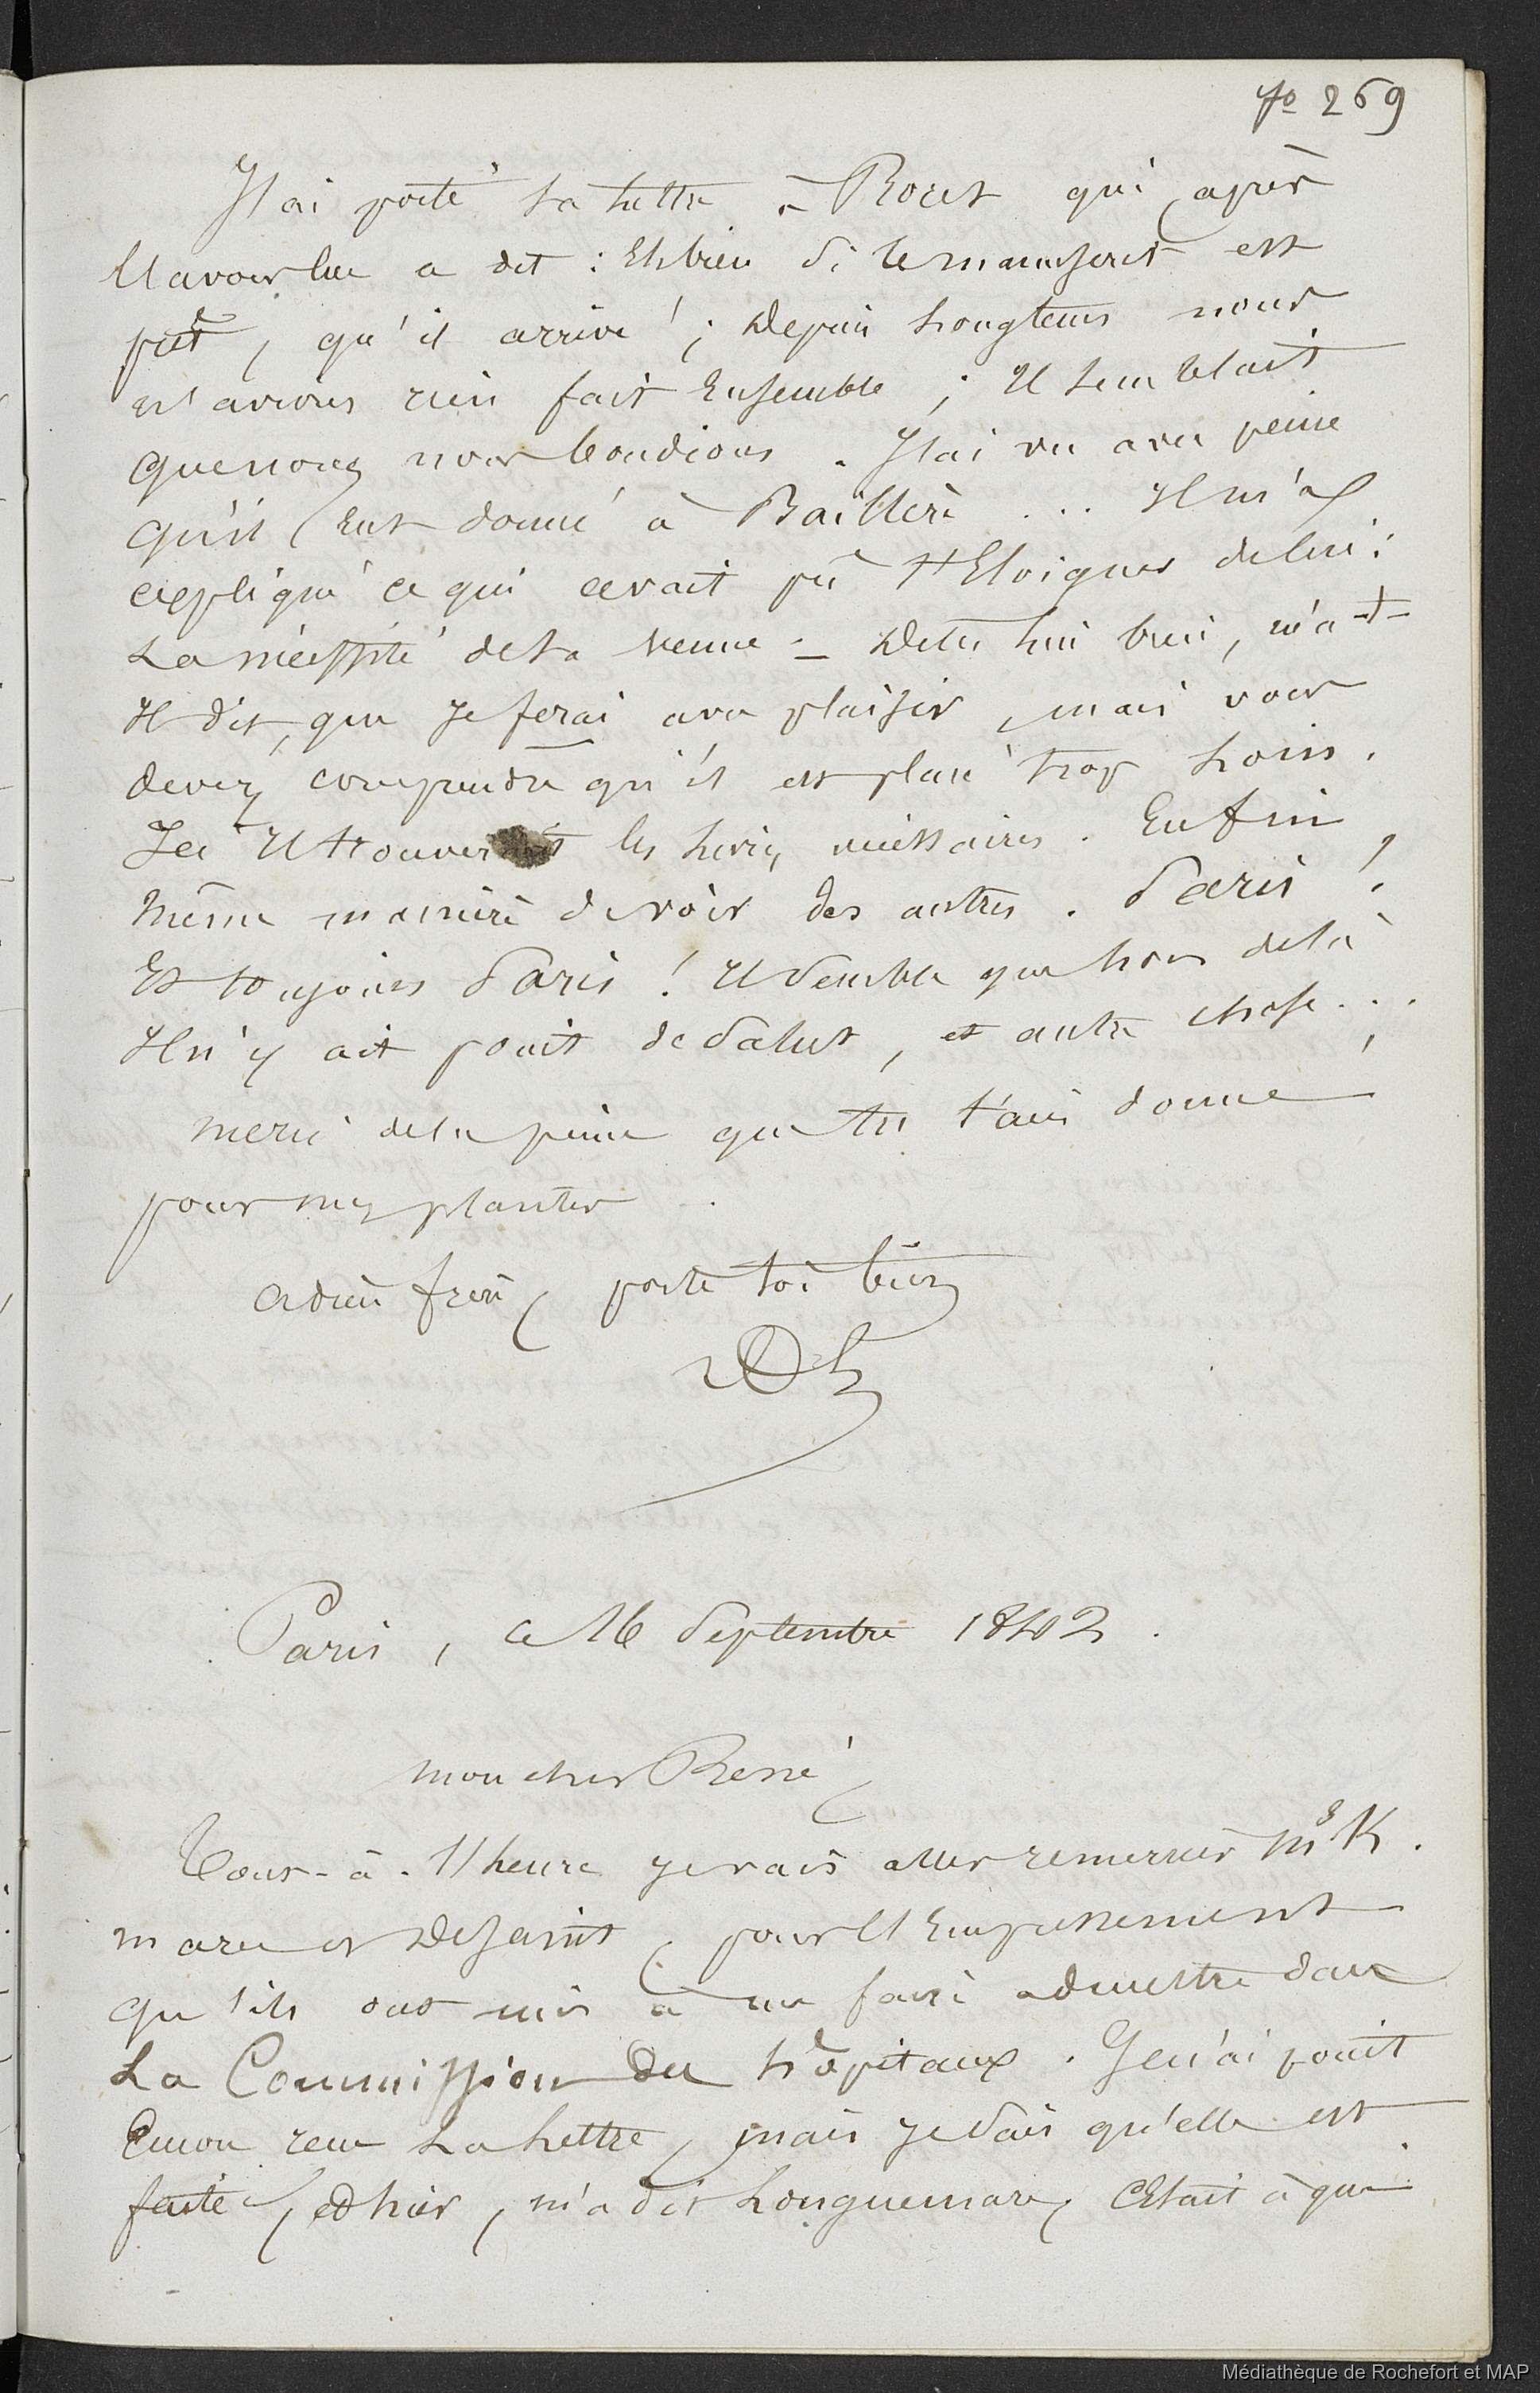 fo 269
J'ai porté ta lettre à Roret qui, après
l'avoir lue a dit : Eh bien si le manuscrit est
prêt, qu'il arrive ! ; Depuis longtems nous
n'avions rien fait Ensemble ; Il semblait
que nous nous boudions. J'ai vu avec peine
qu'il Eut donné à Baillère ... Il m'a
expliqué ce qui avait pû t'Eloigner de lui :
La nécessité de ta venue – Dites lui bien, m'a-t-
Il dit, que Je ferai avec plaisir, mais vous
devez comprendre qu'il est placé trop loin.
Ici Il trouverait les livres nécessaires. Enfin,
même manière de voir des autres. Paris !
Et toujours Paris ! Il semble que hors de là
Il n'y ait point de salut, et autre chose ... ;
merci de la peine que tu t'ais donné
pour mes plantes.
adieu frère, porte toi bien
Paris, ce 16 Septembre 1842.
mon cher René,
Tout-à-l'heure je vais aller remercier Mrs K.
marec et Dejaint, pour l'Empressement
qu'ils ont mis à me faire admettre dans
La Commission des hôpitaux. Je n'ai point
Encore reçu La Lettre, mais je sais qu'elle est
faite, et hier, m'a dit Longuemare, C'était à qui
Médiathèque de Rochefort et MAP